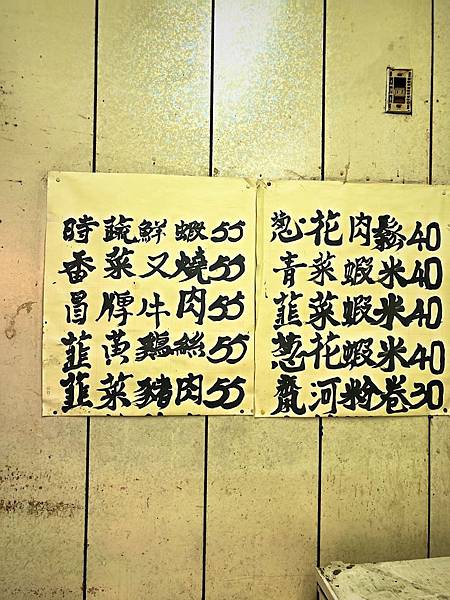 時蔬鮮蝦55
香菜又燒55
牛肉55
韮黄鷄絲55
韮菜豬肉55
葱花肉鬆40
青菜蝦米40
韮菜蝦米40
葱花蝦米40
齋河粉卷30